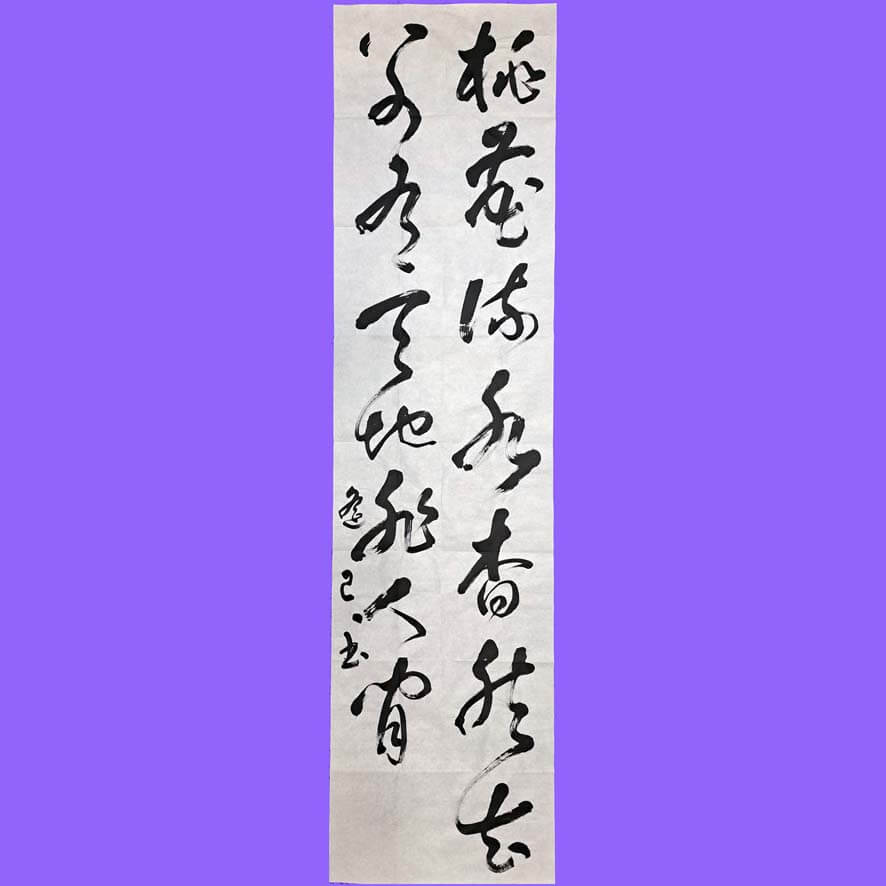 桃花流水杳然去
別有天地非人間
逢己書